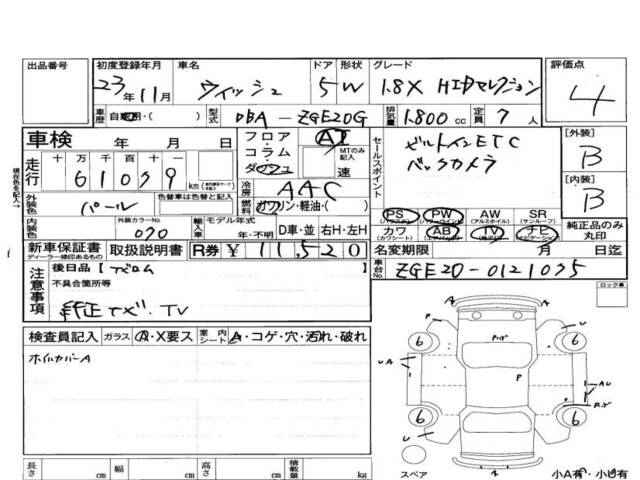 出品番号
初度登録年月
23年11月
車名
ウィッシュ
ドア
5
形状
W
グレード
1.8X HIDセレクション
評価点
4
車歴
自家用・(
型式
DBA-ZGE20G
排気量
1.800cc
定員
7人
車検
年 月 日
走行
十万千百十一
61039
km
フロア
コラム
ダッシュ
AT
MTのみ記入
速
セールスポイント
ビルトインETC
バックカメラ
[外装]
B
[内装]
B
現在色を記入→
外装色
パール
色替車は色替と記入
内装色
外装カラーNo.
070
冷房
AAC
燃料
ガソリン・軽油・(
輸入車
モデル年式
年・不明
D車・並
右H・左H
PS
(パワステ)
PW
(パワーウインド)
AW
(アルミホイル)
SR
(サンルーフ)
カワ
(カワシート)
AB
(エアバッグ)
TV
ナビ
(ナビゲーション)
純正品のみ丸印
新車保証書
ディーラー様印あるもの
取扱説明書
R券
¥11,520
名変期限
月 日迄
車台No.
ZGE20-0121035
注意事項
後日品[ナビロム
不具合箇所等
純正ナビ.TV
ロック車
検査員記入
ガラス
A・X要ス
室内シート
A・コゲ・穴・汚れ・破れ
ホイルカバーA
長さ
cm
幅
cm
高さ
cm
積載量
kg
A
P
U
6
6
UA
P
AU
6
6
スペア
小A有・小U有